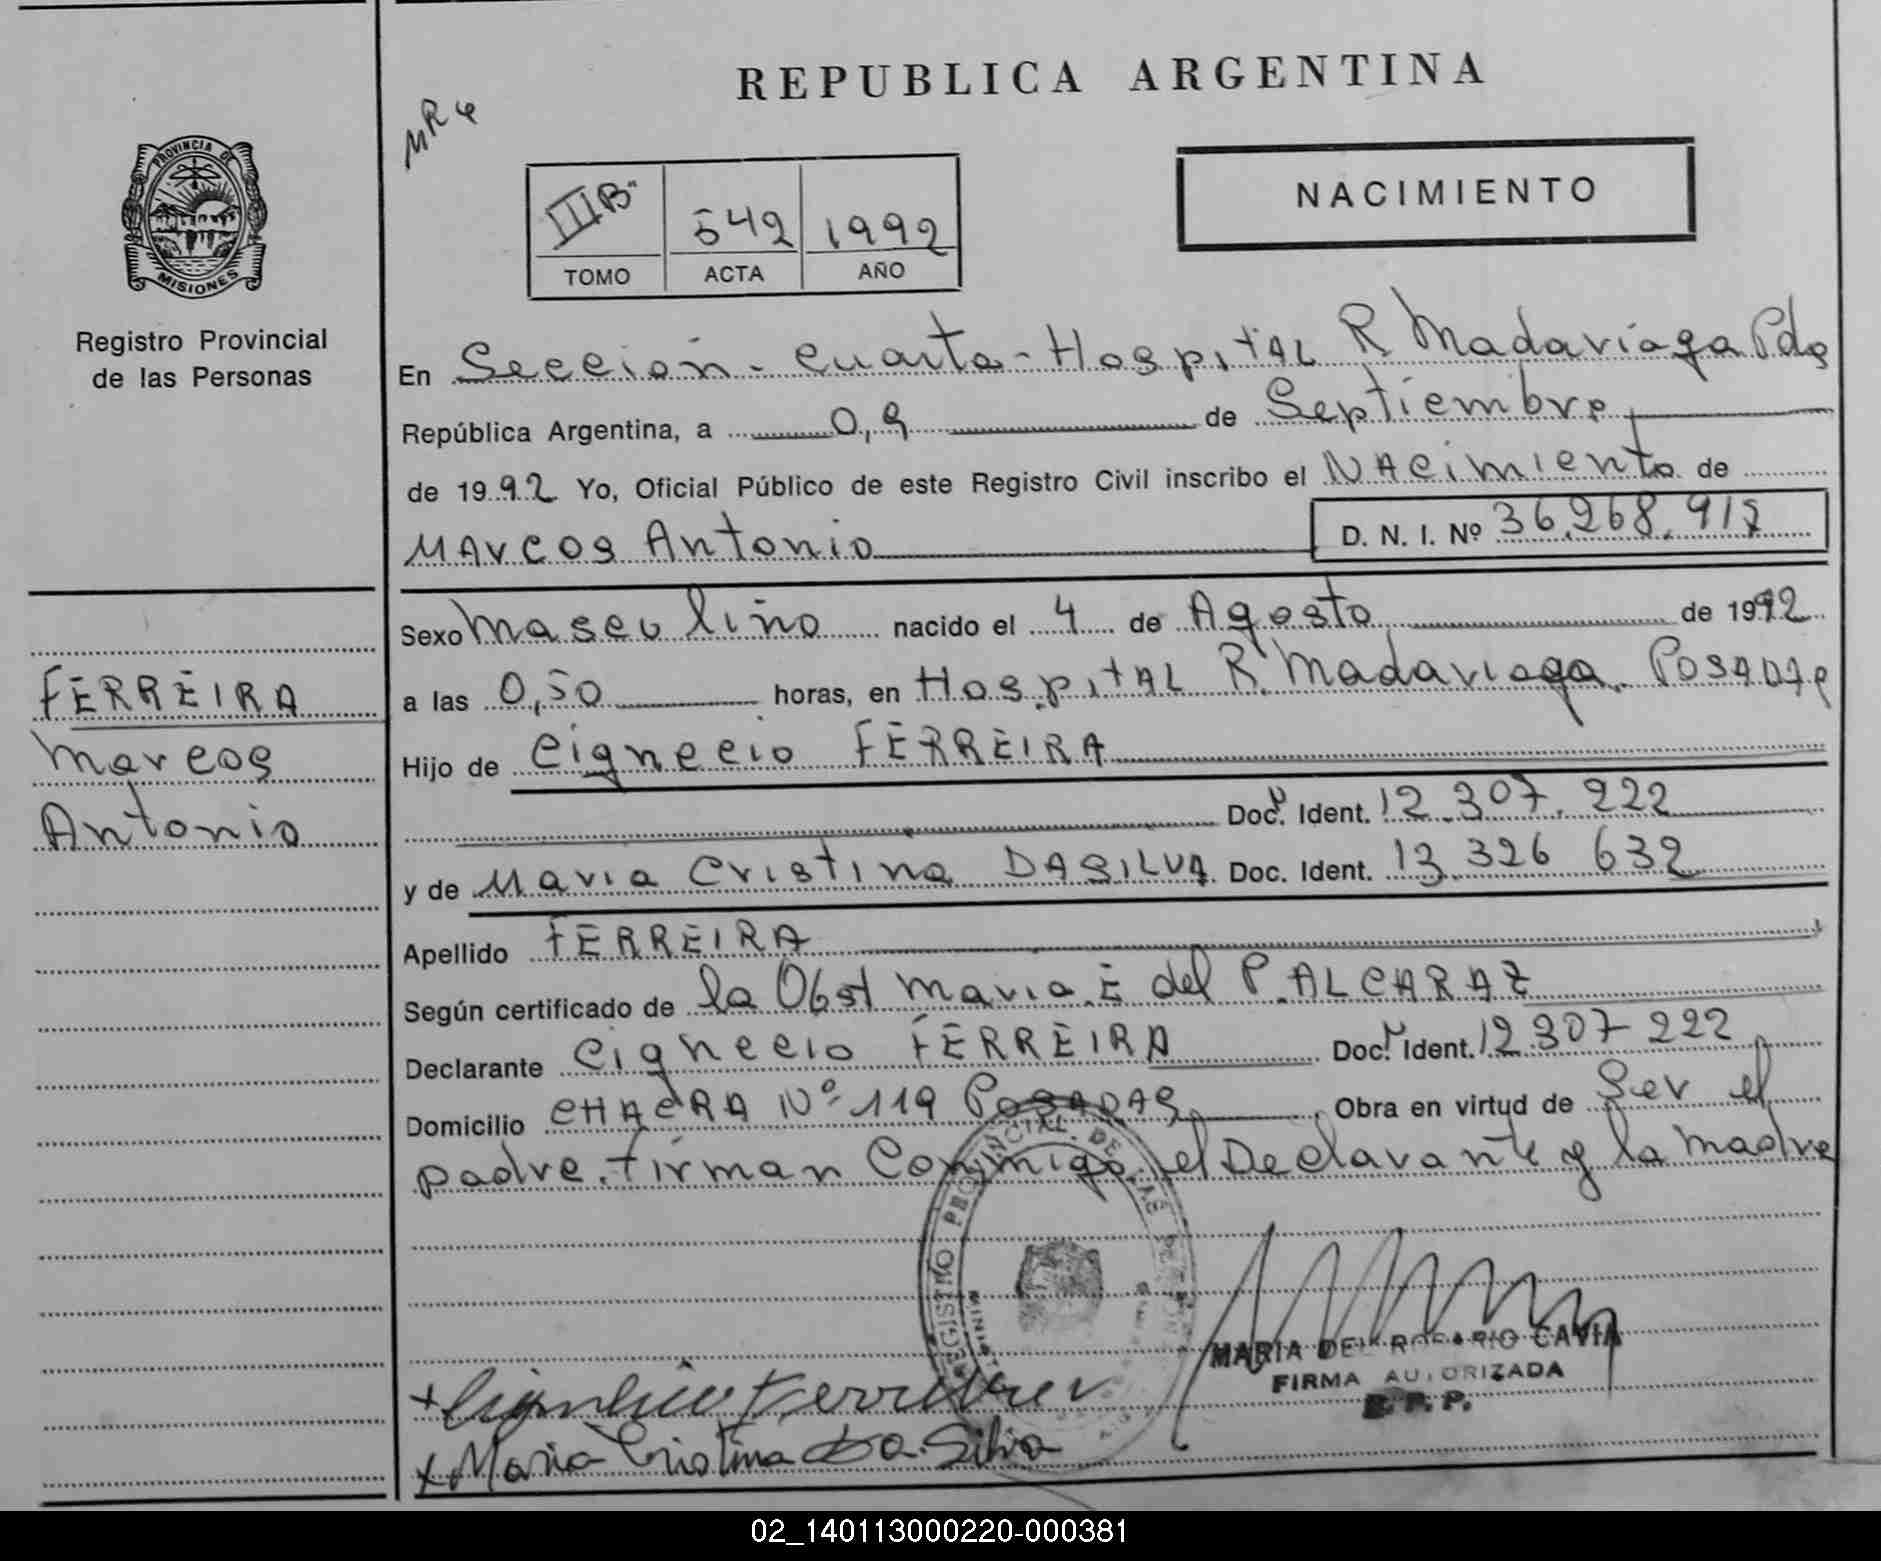 REPUBLICA ARGENTINA
MR4
PROVINCIA DE
MISIONES
Registro Provincial
de las Personas
III B"
542
1992
TOMO
ACTA
AÑO
NACIMIENTO
En Sección Cuarta - Hospital R Madariaga Pdas
República Argentina, a 0,9 de Septiembre
de 1992 Yo, Oficial Público de este Registro Civil inscribo el Nacimiento de
Marcos Antonio D. N. I. Nº 36.268.912
Sexo Masculino nacido el 4 de Agosto de 1992
a las 0,50 horas, en Hospital R. Madariaga. Posadas
Hijo de Cignecio FERREIRA
Doc. Ident. 12.307.222
y de Maria Cristina DASILVA Doc. Ident. 13.326 632
Apellido FERREIRA
Según certificado de la Obst Maria E del P. ALCARAZ
Declarante Cignecio FERREIRA Doc. Ident. 12.307 222
Domicilio CHACRA Nº 119 POSADAS Obra en virtud de Ser el
padre. firman Conmigo el Declarante y la madre
FERREIRA
Marcos
Antonio
REGISTRO PROVINCIAL DE LAS PERSONAS
MARIA DEL ROSARIO CAVIA
FIRMA AUTORIZADA
R. P. P.
x Maria Cristina Da Silva
02_140113000220-000381